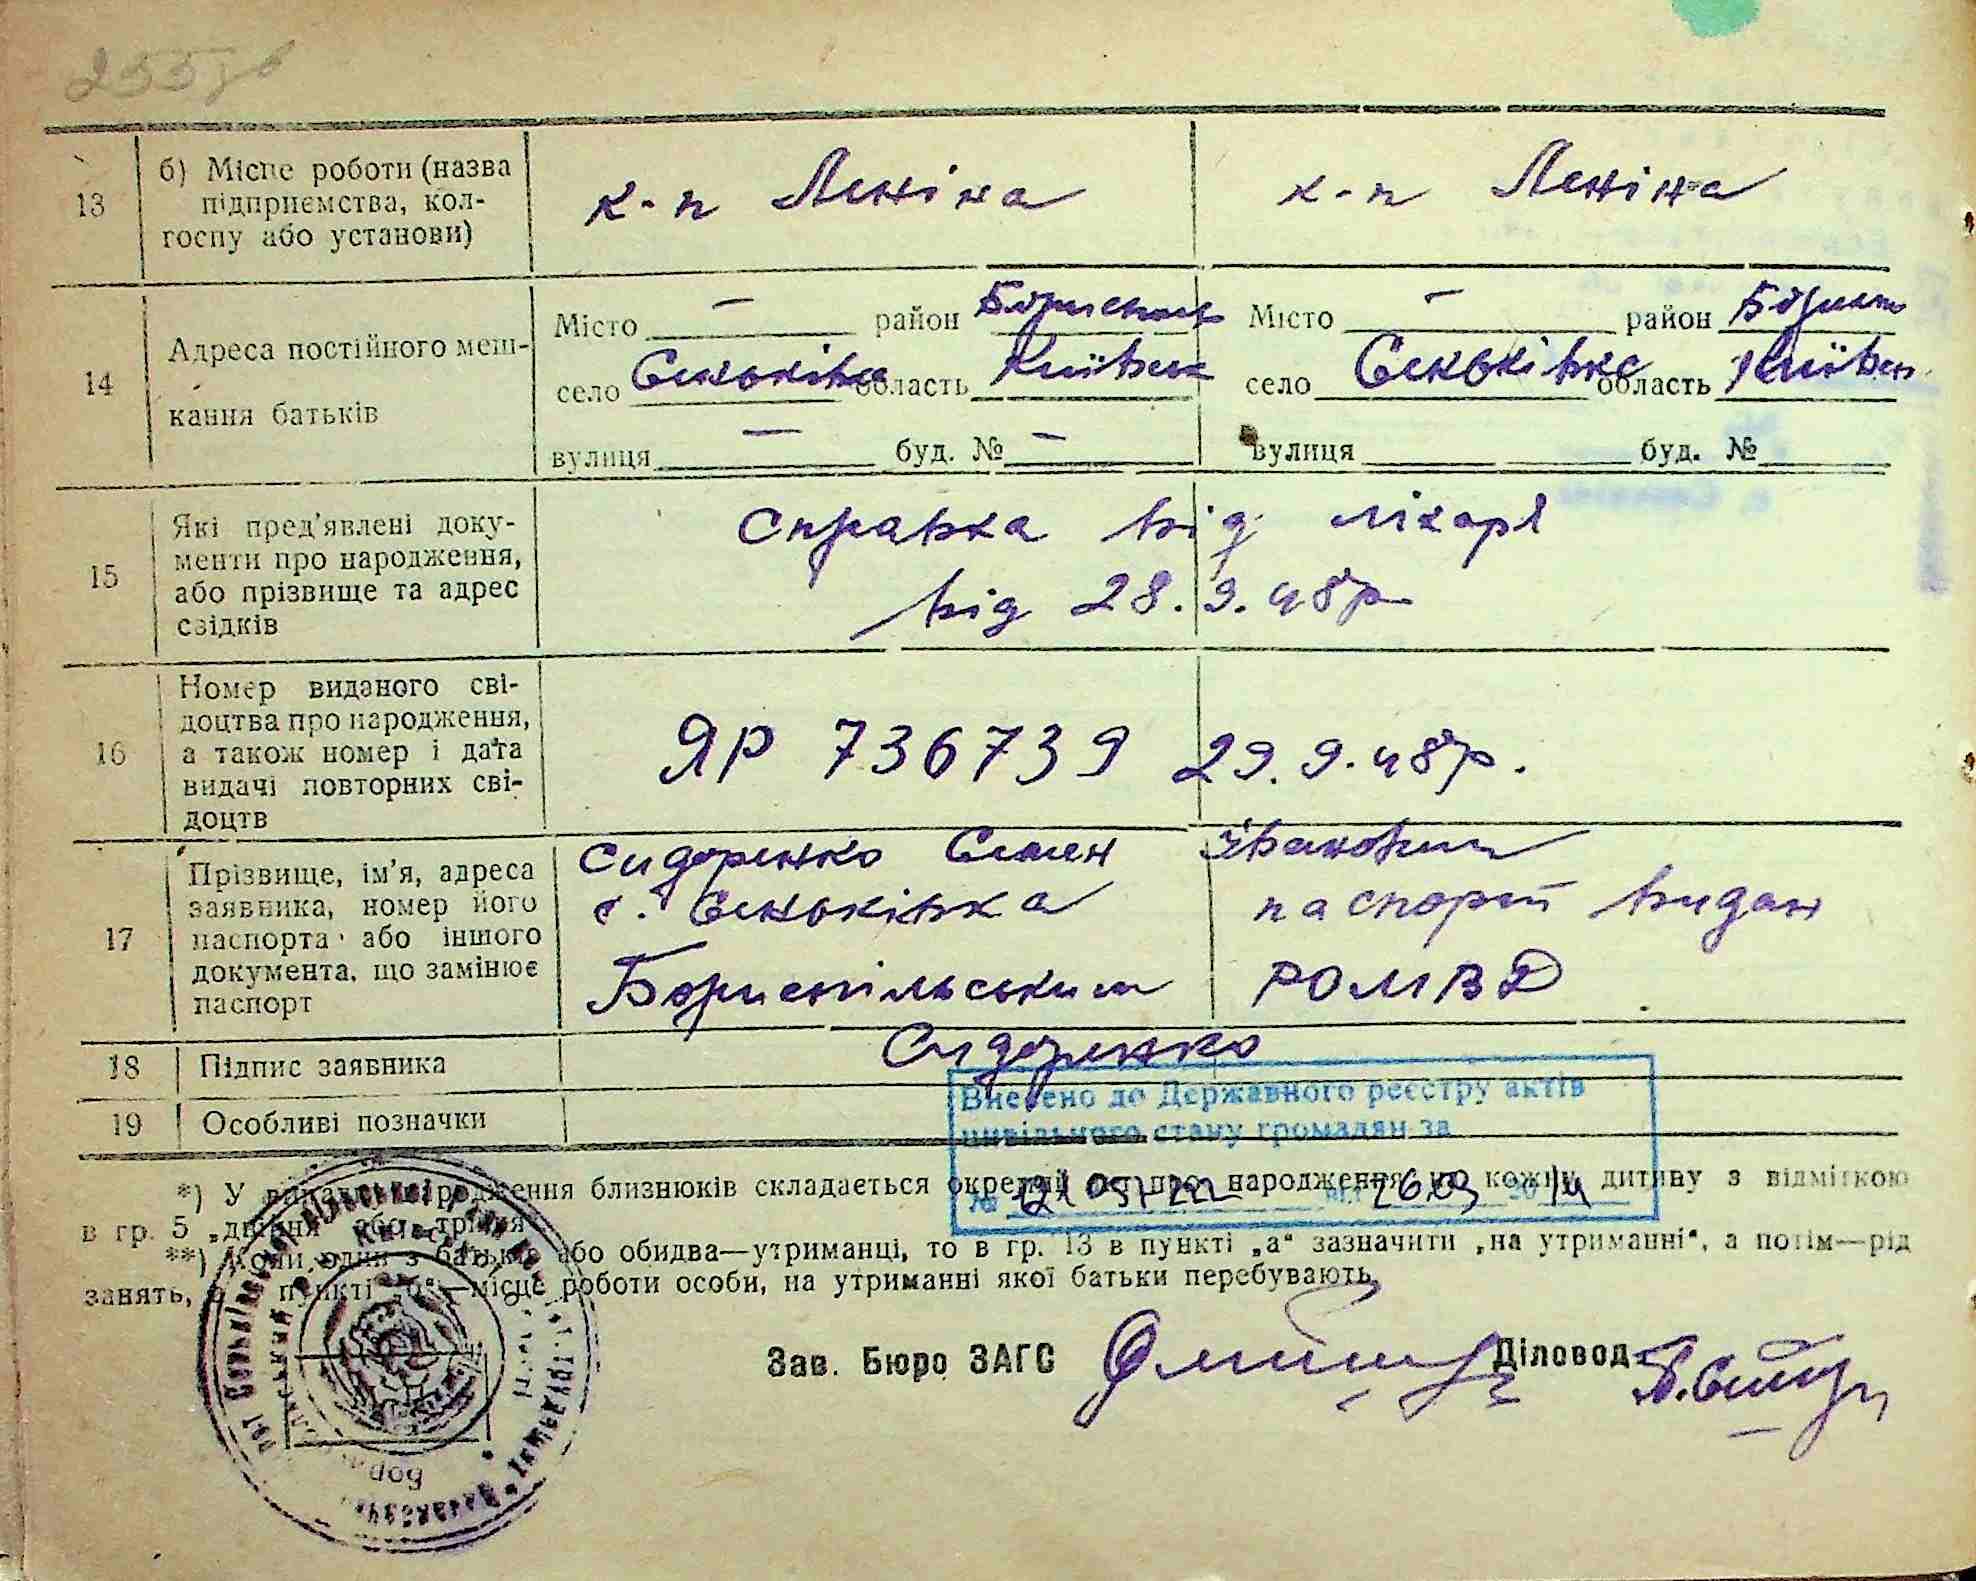 255
13
б) Місце роботи (назва
підприємства, кол-
госпу або установи)
к-п Леніна
к-п Леніна
14
Адреса постійного меш-
кання батьків
Місто — район Бориспольск
село Сеньківка область Київськ
вулиця — буд. № —
Місто — район Борисп
село Сеньківка область Київськ
вулиця буд. №
15
Які пред'явлені доку-
менти про народження,
або прізвище та адрес
свідків
Справка від лікаря
від 28.9.48р.
16
Номер виданого сві-
доцтва про народження,
а також номер і дата
видачі повторних сві-
доцтв
ЯР 736739 29.9.48р.
17
Прізвище, ім'я, адреса
заявника, номер його
паспорта або іншого
документа, що замінює
паспорт
Сидоренко Семен Іванович
с. Сеньківка паспорт видан
Бориспільським РОМВД
18 Підпис заявника
Сидоренко
19 Особливі позначки
Внесено до Державного реєстру актів
цивільного стану громадян за
№ від 26.03 2014
*) У випадку народження близнюків складається окремий акт про народження на кожну дитину з відміткою
в гр. 5 „двійня" або „трійня"
**) Коли один з батьків або обидва—утриманці, то в гр. 13 в пункті „а" зазначити „на утриманні", а потім—рід
занять, а в пункті „б"—місце роботи особи, на утриманні якої батьки перебувають.
Зав. Бюро ЗАГС
Діловод